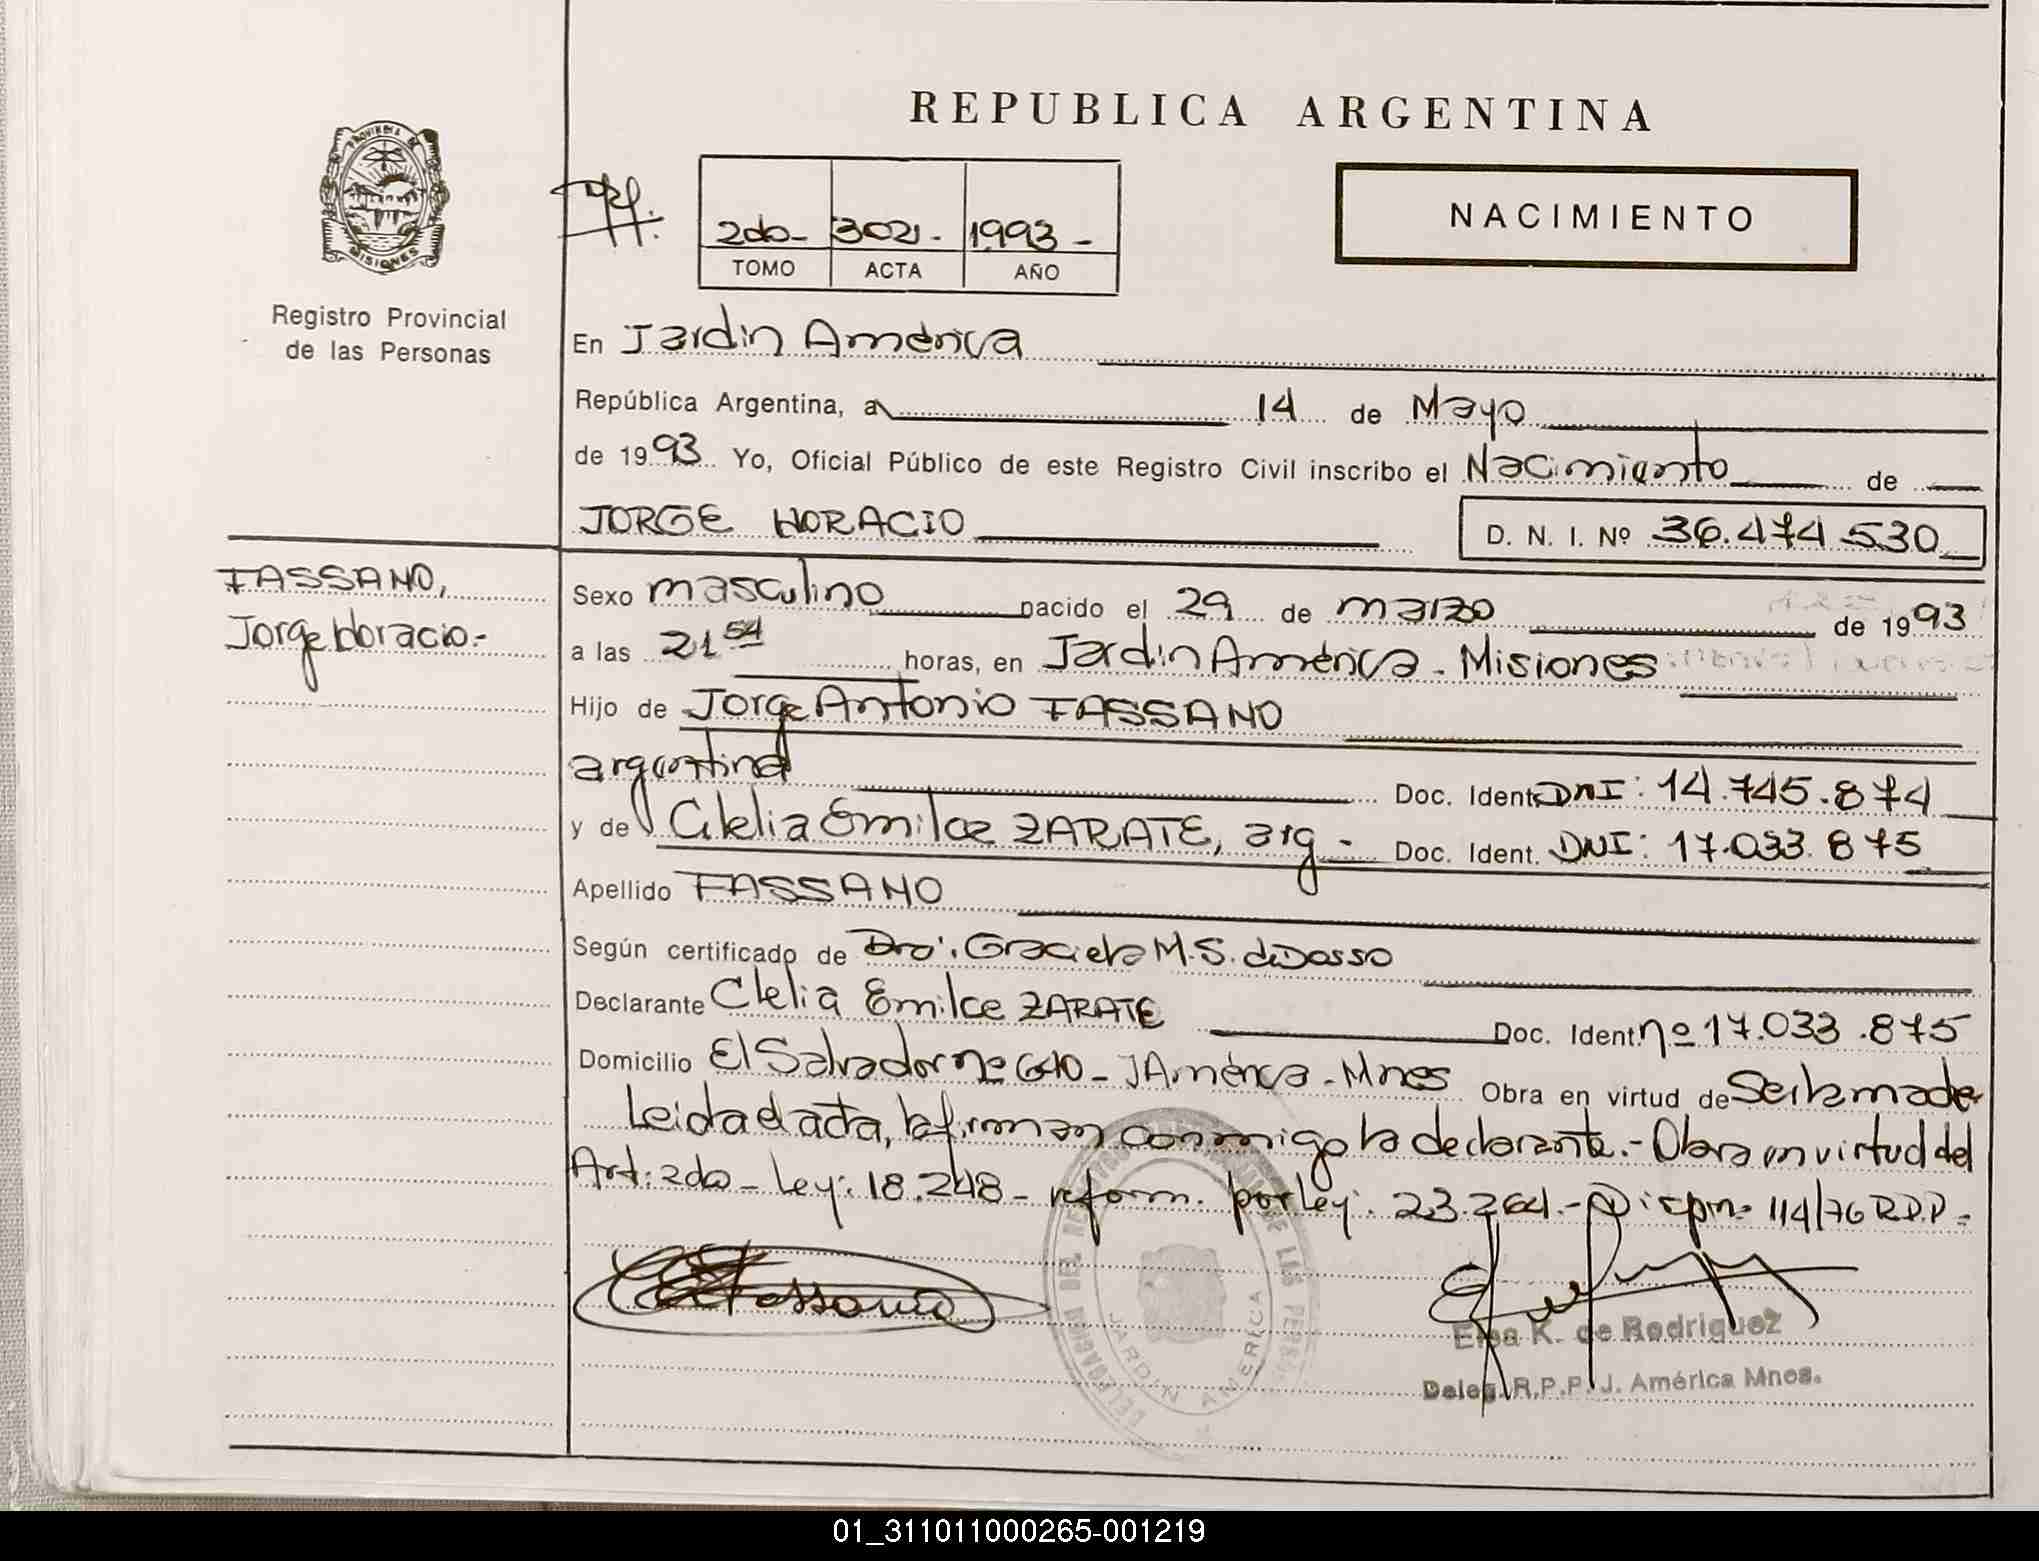 REPUBLICA ARGENTINA
PROVINCIA DE
MISIONES
Registro Provincial
de las Personas
2do- 3021- 1993-
TOMO ACTA AÑO
NACIMIENTO
En Jardin América
República Argentina, a 14 de Mayo
de 1993 Yo, Oficial Público de este Registro Civil inscribo el Nacimiento de
JORGE HORACIO D. N. I. Nº 36.474.530
FASSANO,
Jorge Horacio.-
Sexo masculino nacido el 29 de marzo de 1993
a las 21 54 horas, en Jardin América - Misiones
Hijo de Jorge Antonio FASSANO
argentina Doc. Ident. DNI: 14.745.874
y de Clelia Emilce ZARATE, arg.- Doc. Ident. DNI: 17.033.875
Apellido FASSANO
Según certificado de Dra. Graciela M.S. de Dosso
Declarante Clelia Emilce ZARATE Doc. Ident. nº 17.033.875
Domicilio El Salvador nº 640 - J América - Mnes Obra en virtud de Ser la madre
Leida el acta, la firman conmigo la declarante.- Obra en virtud del
Art: 2do - Ley: 18.248 - reform. por ley: 23.264.- Dispn: 114/76 R.P.P.-
Fassano
DELEGACION DEL REGISTRO DE LAS PERSONAS
JARDIN AMERICA
Elsa K. de Rodriguez
Deleg. R.P.P. J. América Mnes.
01_311011000265-001219